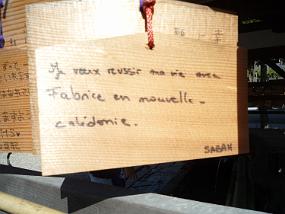 Je veux reussir ma vie avec
Fabrice en nouvelle-
calédonie.
SABAH